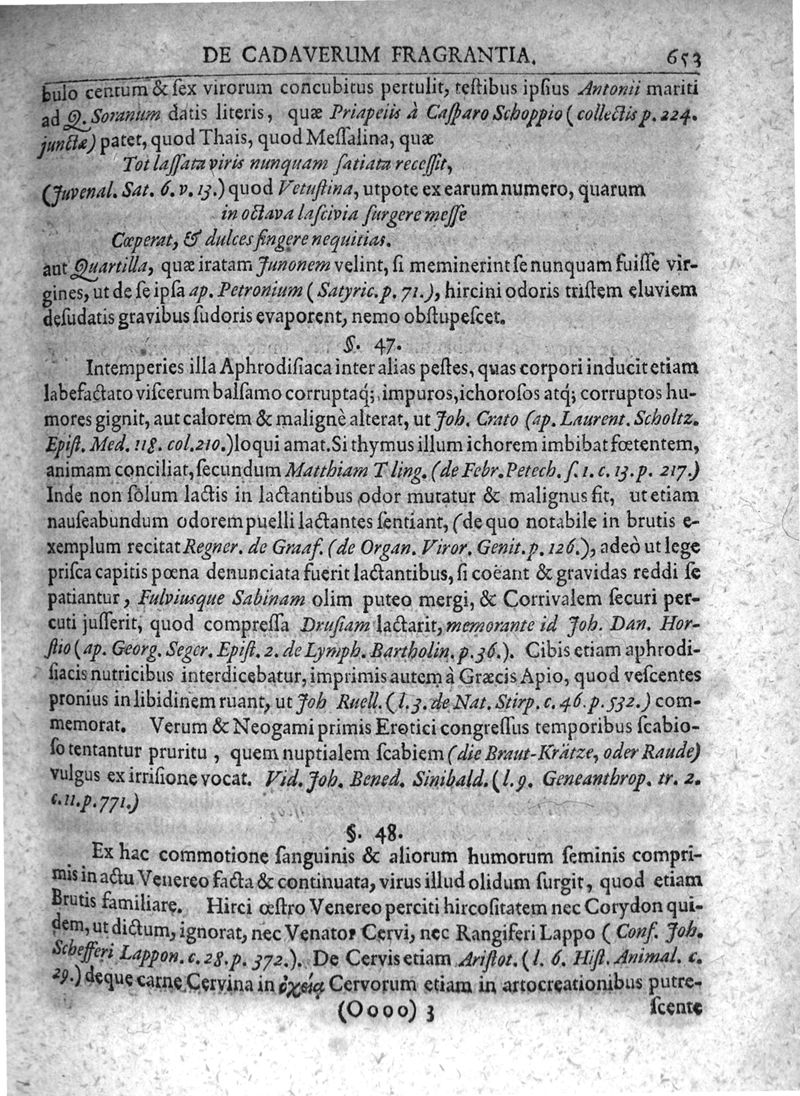 DE CADAVERUM FRAGRANTIA. 653
bulo centum & ſex virorum concubitus pertulit, teſtibus ipſius Antonii mariti
ad Q. Soranum datis literis, quæ Priapeiis à Caſparo Schoppio (collectis p. 224.
junctæ) patet, quod Thais, quod Meſſalina, quæ
Tot laſſata viris nunquam ſatiata receſſit,
(Juvenal. Sat. 6. v. 13.) quod Vetuſtina, utpote ex earum numero, quarum
in octava laſcivia ſurgere meſſe
Cœperat, & dulces fingere nequitias.
aut Quartilla, quæ iratam Junonem velint, ſi meminerint ſe nunquam fuiſſe vir-
gines, ut de ſe ipſa ap. Petronium (Satyric. p. 71.), hircini odoris triſtem eluviem
deſudatis gravibus ſudoris evaporent, nemo obſtupeſcet.
§. 47.
Intemperies illa Aphrodiſiaca inter alias peſtes, quas corpori inducit etiam
labefactato viſcerum balſamo corruptaq́;, impuros, ichoroſos atq́; corruptos hu-
mores gignit, aut calorem & malignè alterat, ut Joh. Crato (ap. Laurent. Scholtz.
Epiſt. Med. 118. col. 210.) loqui amat. Si thymus illum ichorem imbibat fœtentem,
animam conciliat, ſecundum Matthiam Tling. (de Febr. Petech. ſ. 1. c. 13. p. 217.)
Inde non ſolum lactis in lactantibus odor mutatur & malignus fit, ut etiam
nauſeabundum odorem puelli lactantes ſentiant, (de quo notabile in brutis e-
xemplum recitat Regner. de Graaf. (de Organ. Viror. Genit. p. 126.), adeò ut lege
priſca capitis pœna denunciata fuerit lactantibus, ſi coëant & gravidas reddi ſe
patiantur, Fulviusque Sabinam olim puteo mergi, & Corrivalem ſecuri per-
cuti juſſerit, quod compreſſa Druſiam lactarit, memorante id Joh. Dan. Hor-
ſtio (ap. Georg. Seger. Epiſt. 2. de Lymph. Bartholin. p. 36.). Cibis etiam aphrodi-
ſiacis nutricibus interdicebatur, imprimis autem à Græcis Apio, quod veſcentes
pronius in libidinem ruant, ut Joh Ruell. (l. 3. de Nat. Stirp. c. 46. p. 532.) com-
memorat. Verum & Neogami primis Erotici congreſſus temporibus ſcabio-
ſo tentantur pruritu, quem nuptialem ſcabiem (die Braut-Krätze, oder Raude)
vulgus ex irriſione vocat. Vid. Joh. Bened. Sinibald. (l. 9. Geneanthrop. tr. 2.
c. 11. p. 771.)
§. 48.
Ex hac commotione ſanguinis & aliorum humorum ſeminis compri-
mis in actu Venereo facta & continuata, virus illud olidum ſurgit, quod etiam
Brutis familiare. Hirci œſtro Venereo perciti hircoſitatem nec Corydon qui-
dem, ut dictum, ignorat, nec Venator Cervi, nec Rangiferi Lappo (Conf. Joh.
Schefferi Lappon. c. 28. p. 372.). De Cervis etiam Ariſtot. (l. 6. Hiſt. Animal. c.
29.) deque carne Cervina in ὀχείᾳ Cervorum etiam in artocreationibus putre-
(Oooo) 3 ſcente